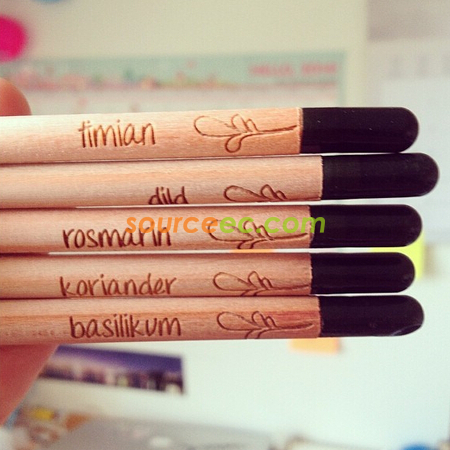 timian
dild
rosmarin
sourceec.com
koriander
basilikum